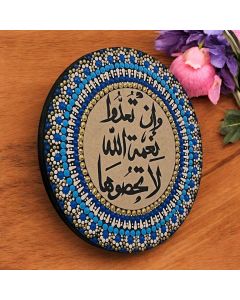 وإن تعدوا
نعمة الله
لا تحصوها